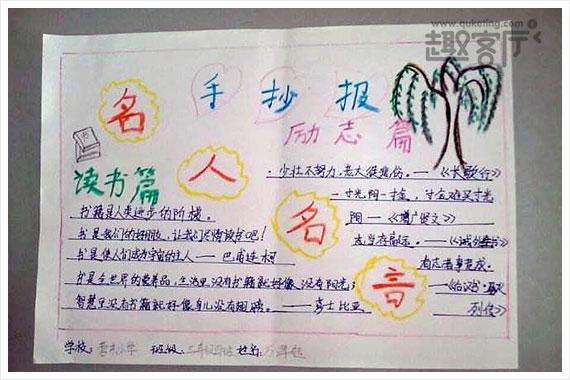 www.quketing.com
趣客厅
手抄报
名人名言
励志篇
读书篇
·少壮不努力,老大徒悲伤。——《长歌行》
一寸光阳一寸金,寸金难买寸光
阳——《增广贤文》
志当存高远。——《诫外甥书》
有志者事竟成。
——《后汉书·
列传》
书籍是人类进步的阶梯。
书是我们的好朋友,让我们尽情读书吧!
书是使人们成为宇宙的主人——巴甫连柯
书是全世界的营养品,生活里没有书籍就好像没有阳光;
智慧里没有书籍就好像鸟儿没有翅膀。——莎士比亚
学校: 小学 班级: 姓名: